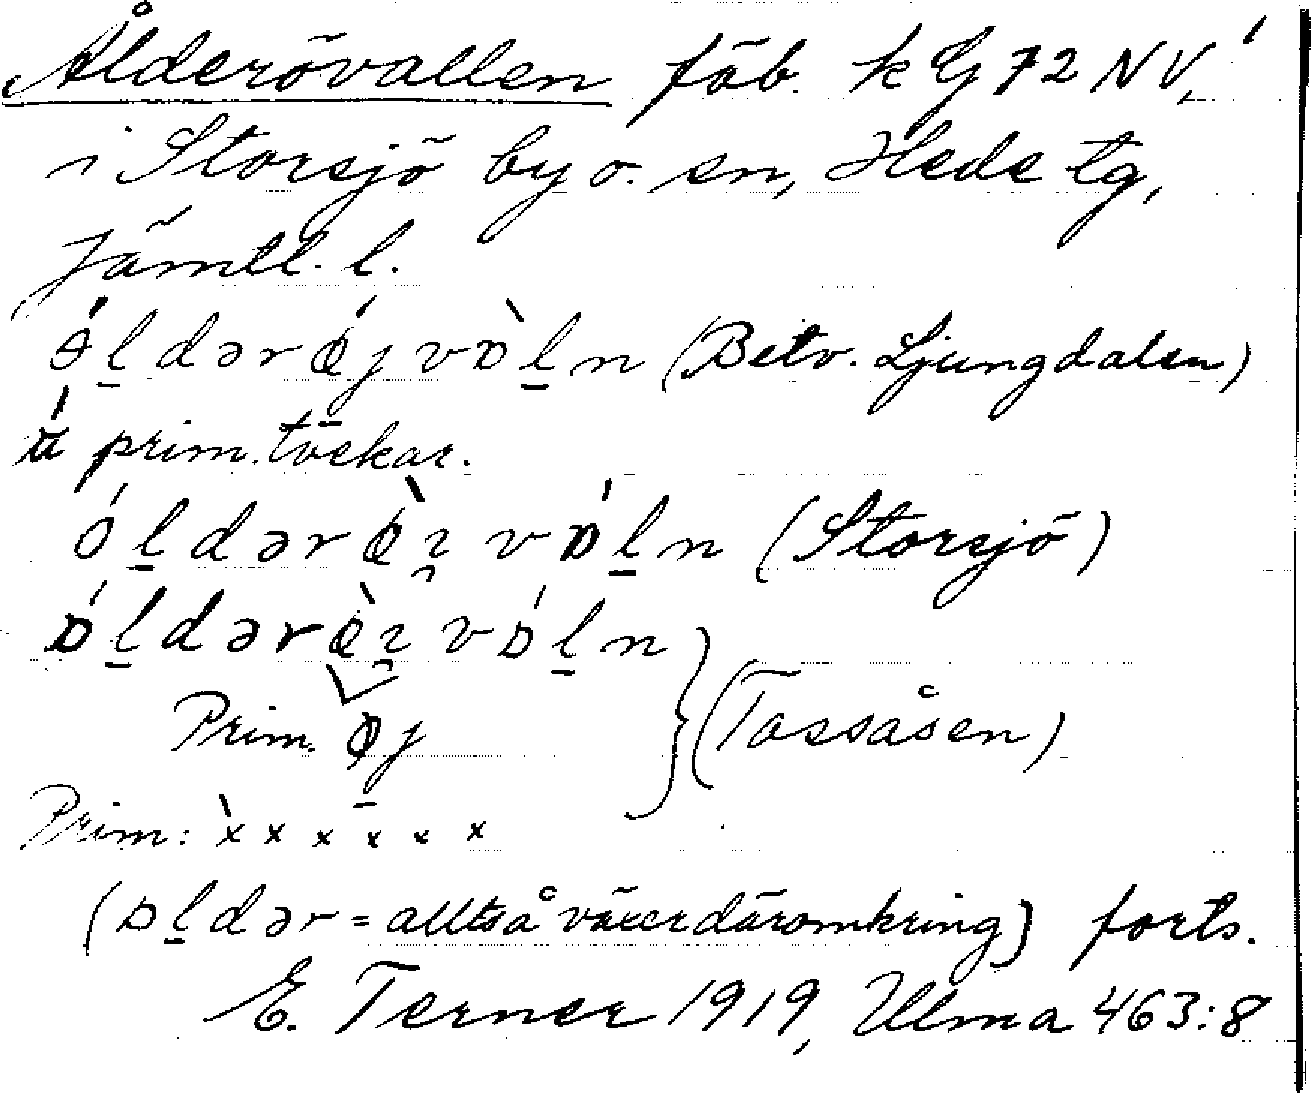 Ålderövallen fäb. kG 72 NV,
i Storsjö by o. sn, Hede tg,
Jämtl. l.
ɵ́l̠dərǿjvɒ̀l̠n (Betv. Ljungdalen)
prim. tvekar.
ól̠dərø̀ɪ̯vɒ́l̠n (Storsjö)
ɒ́l̠dərø̀ɪ̯vɒ́l̠n
Prim. øj (Tossåsen)
Prim: x̀ x x x x x
(ɒl̠dər = alltså växer däromkring) forts.
E. Terner 1919, Ulma 463:8